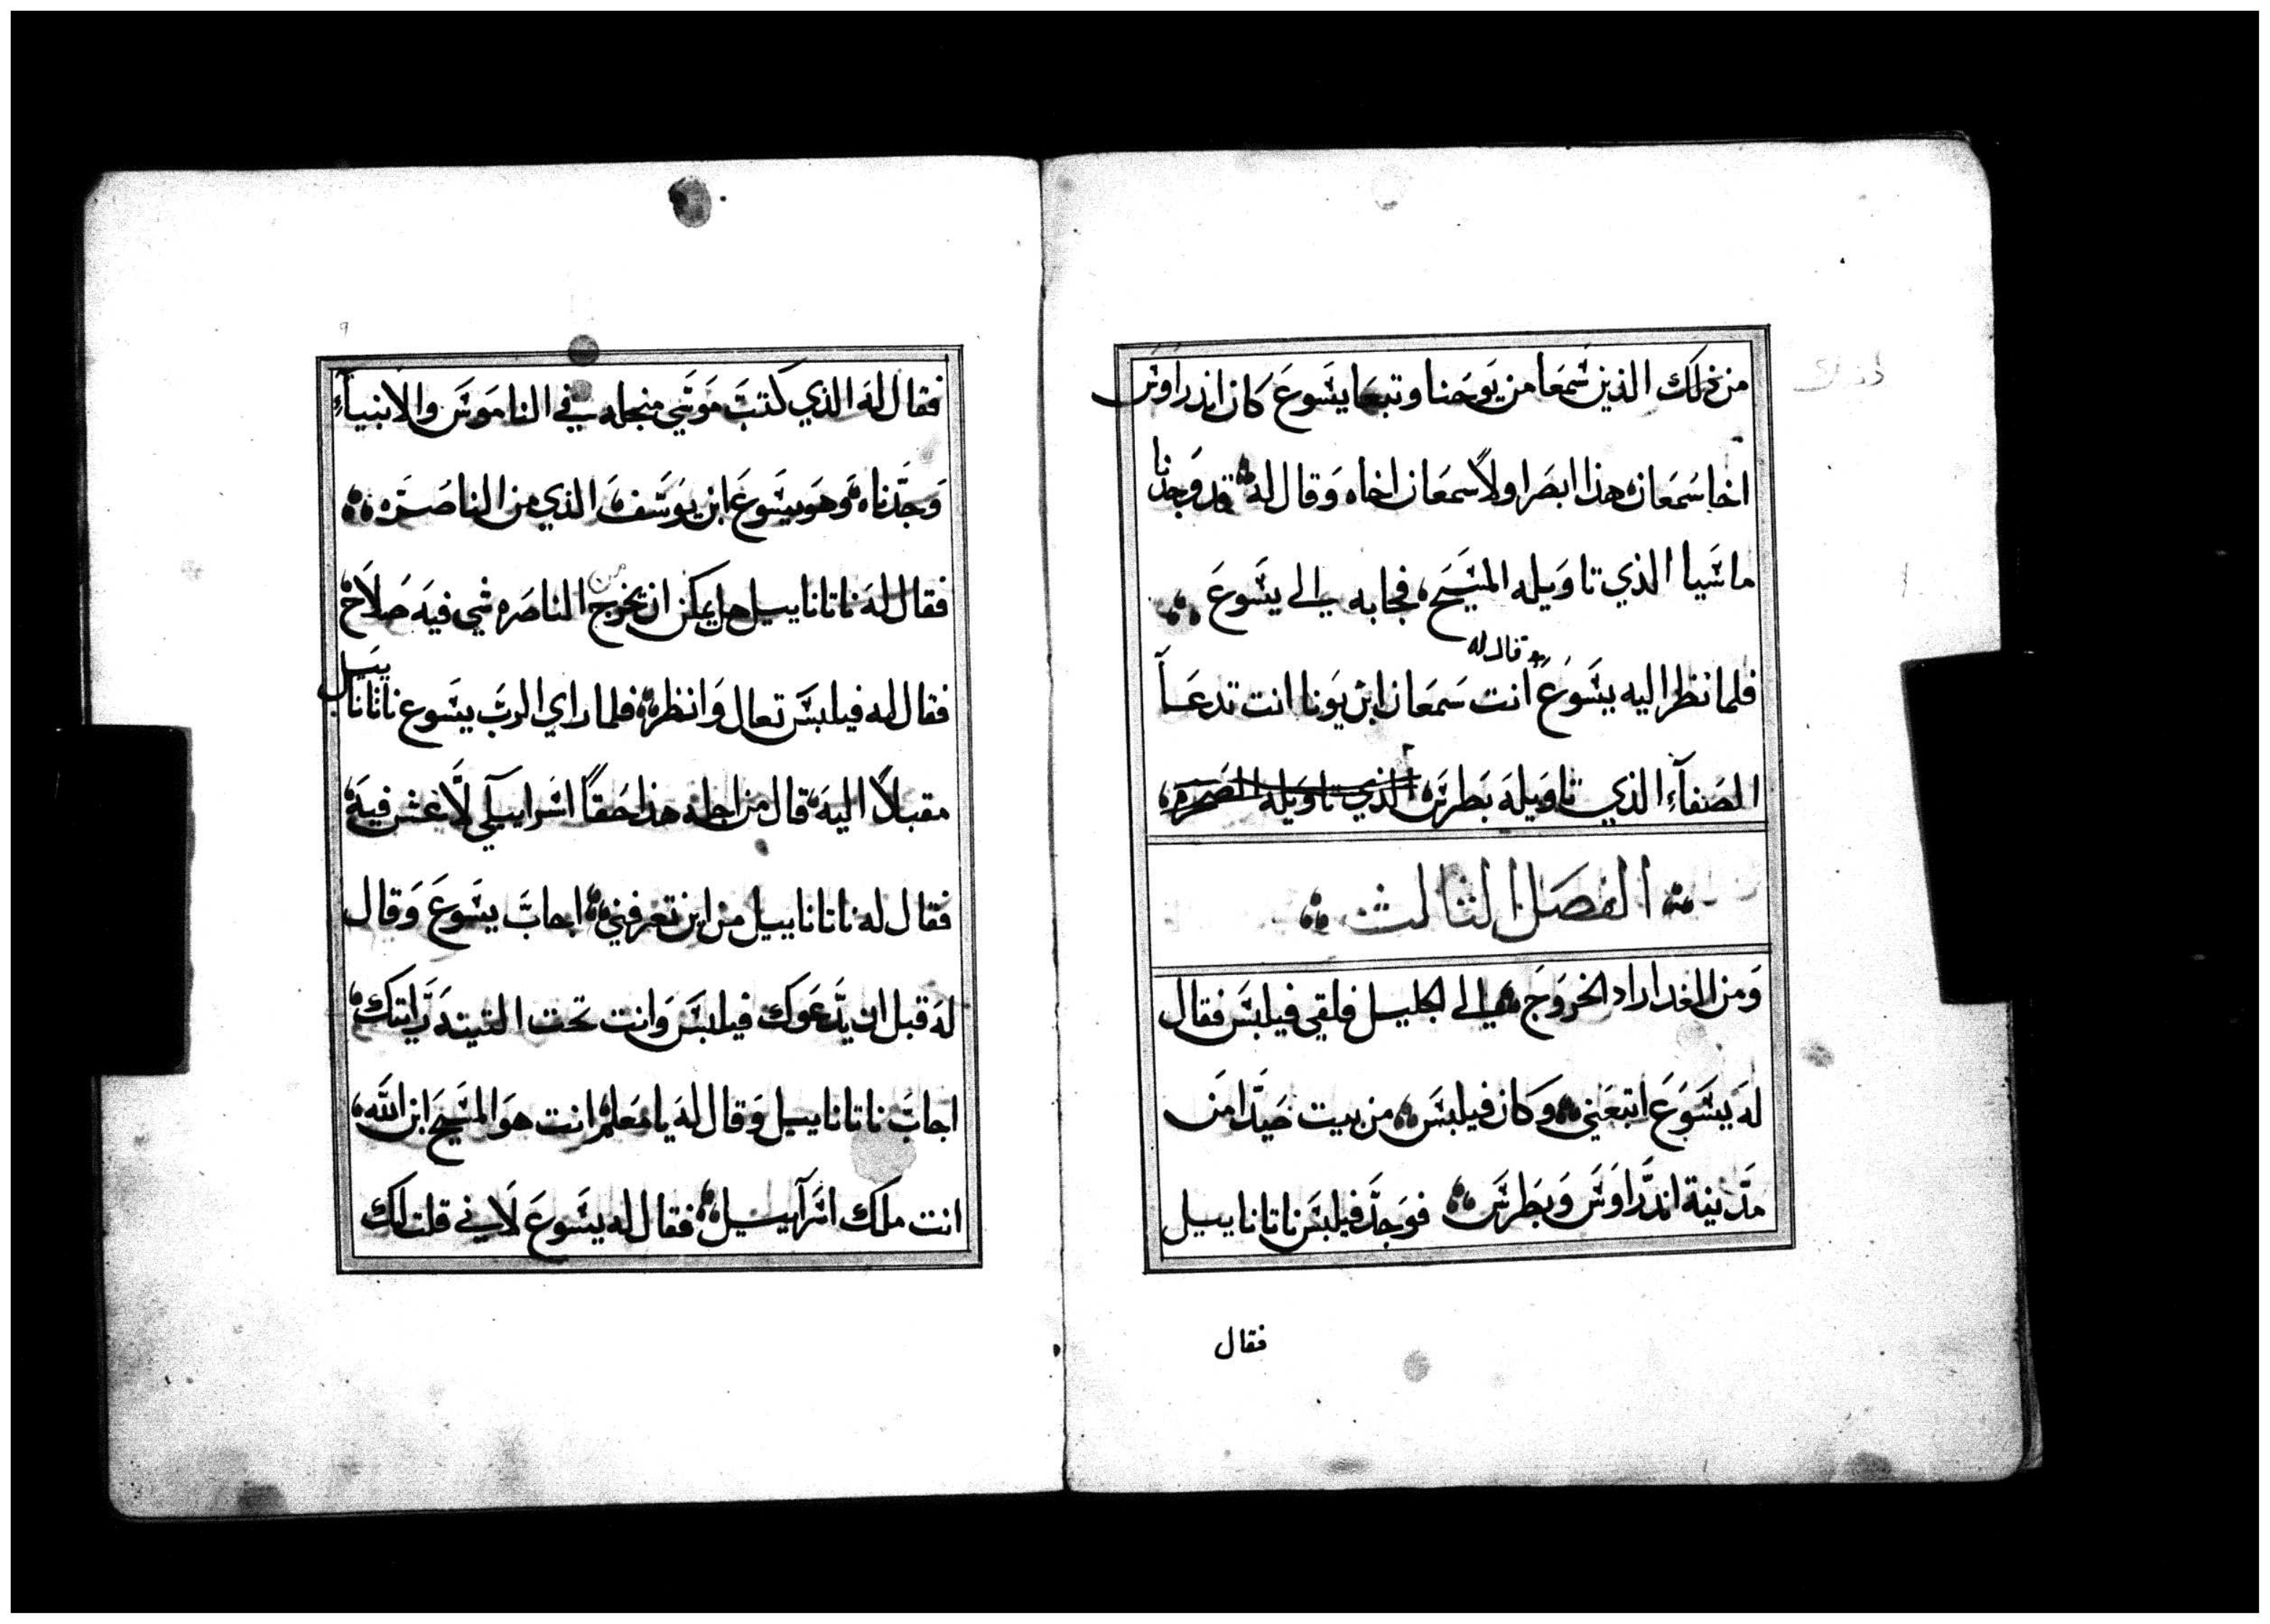 من ذلك الذين سمعا من يوحنا وتبعا يسوع كان اندراوس
اخا سمعان هذا ابصر اولاً سمعان اخاه وقال له قد وجدنا
ماسيا الذي تاويله المسيح فجا به الى يسوع
قال له
فلما نظر اليه يسوع انت سمعان ابن يونا انت تدعا
الصفاء الذي تاويله بطرس الذي تاويله الصخره
الفصل الثالث
ومن الغد اراد الخروج الى الجليل فلقى فيلبس فقال
له يسوع اتبعني وكان فيلبس من بيت صيدا من
مدينة اندراوس وبطرس فوجد فيلبس ناتانابيل
فقال
٩
فقال له الذي كتب موسي من اجله في الناموس والانبياء
وجدناه وهو يسوع ابن يوسف الذي من الناصره
فقال له ناتاناييل هل يمكن ان يخرج من الناصره شي فيه صلاح
فقال له فيلبس تعال وانظر فلما راي الرب يسوع ناتاناييل
مقبلاً اليه قال من اجله هذا حقاً اسراييلي لا غش فيه
فقال له ناتاناييل من اين تعرفني اجاب يسوع وقال
له قبل ان يدعوك فيلبس وانت تحت التينه رايتك
اجاب ناتاناييل وقال له يا معلم انت هو المسيح ابن الله
انت ملك اسراييل فقال له يسوع لاني قلت لك